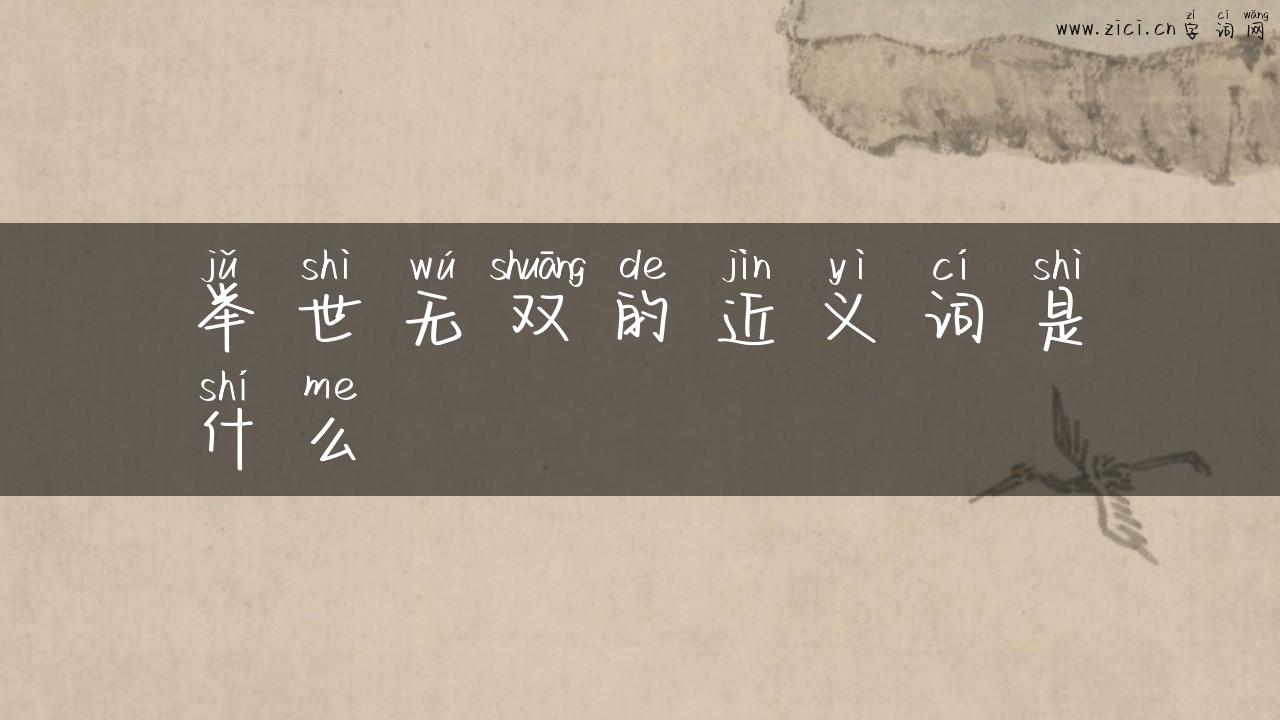 zì cí wǎng
www.zici.cn 字词网
jǔ shì wú shuāng de jìn yì cí shì
举世无双的近义词是
shí me
什么